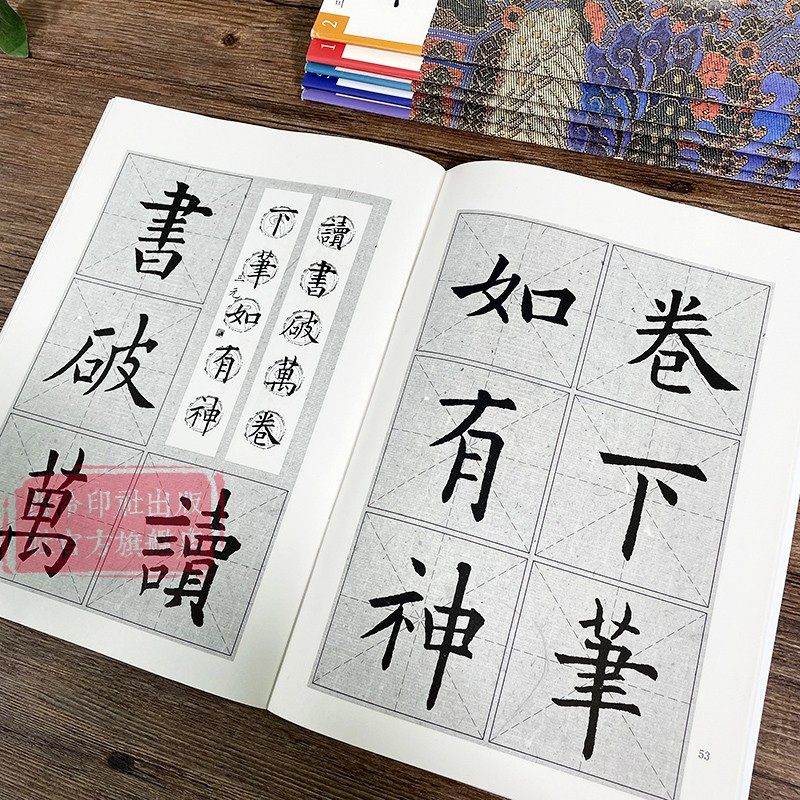 讀書破萬卷
下筆如有神
讀
書破萬
卷下筆
如有神
53
泠印社出版
官方旗艦店
2
1